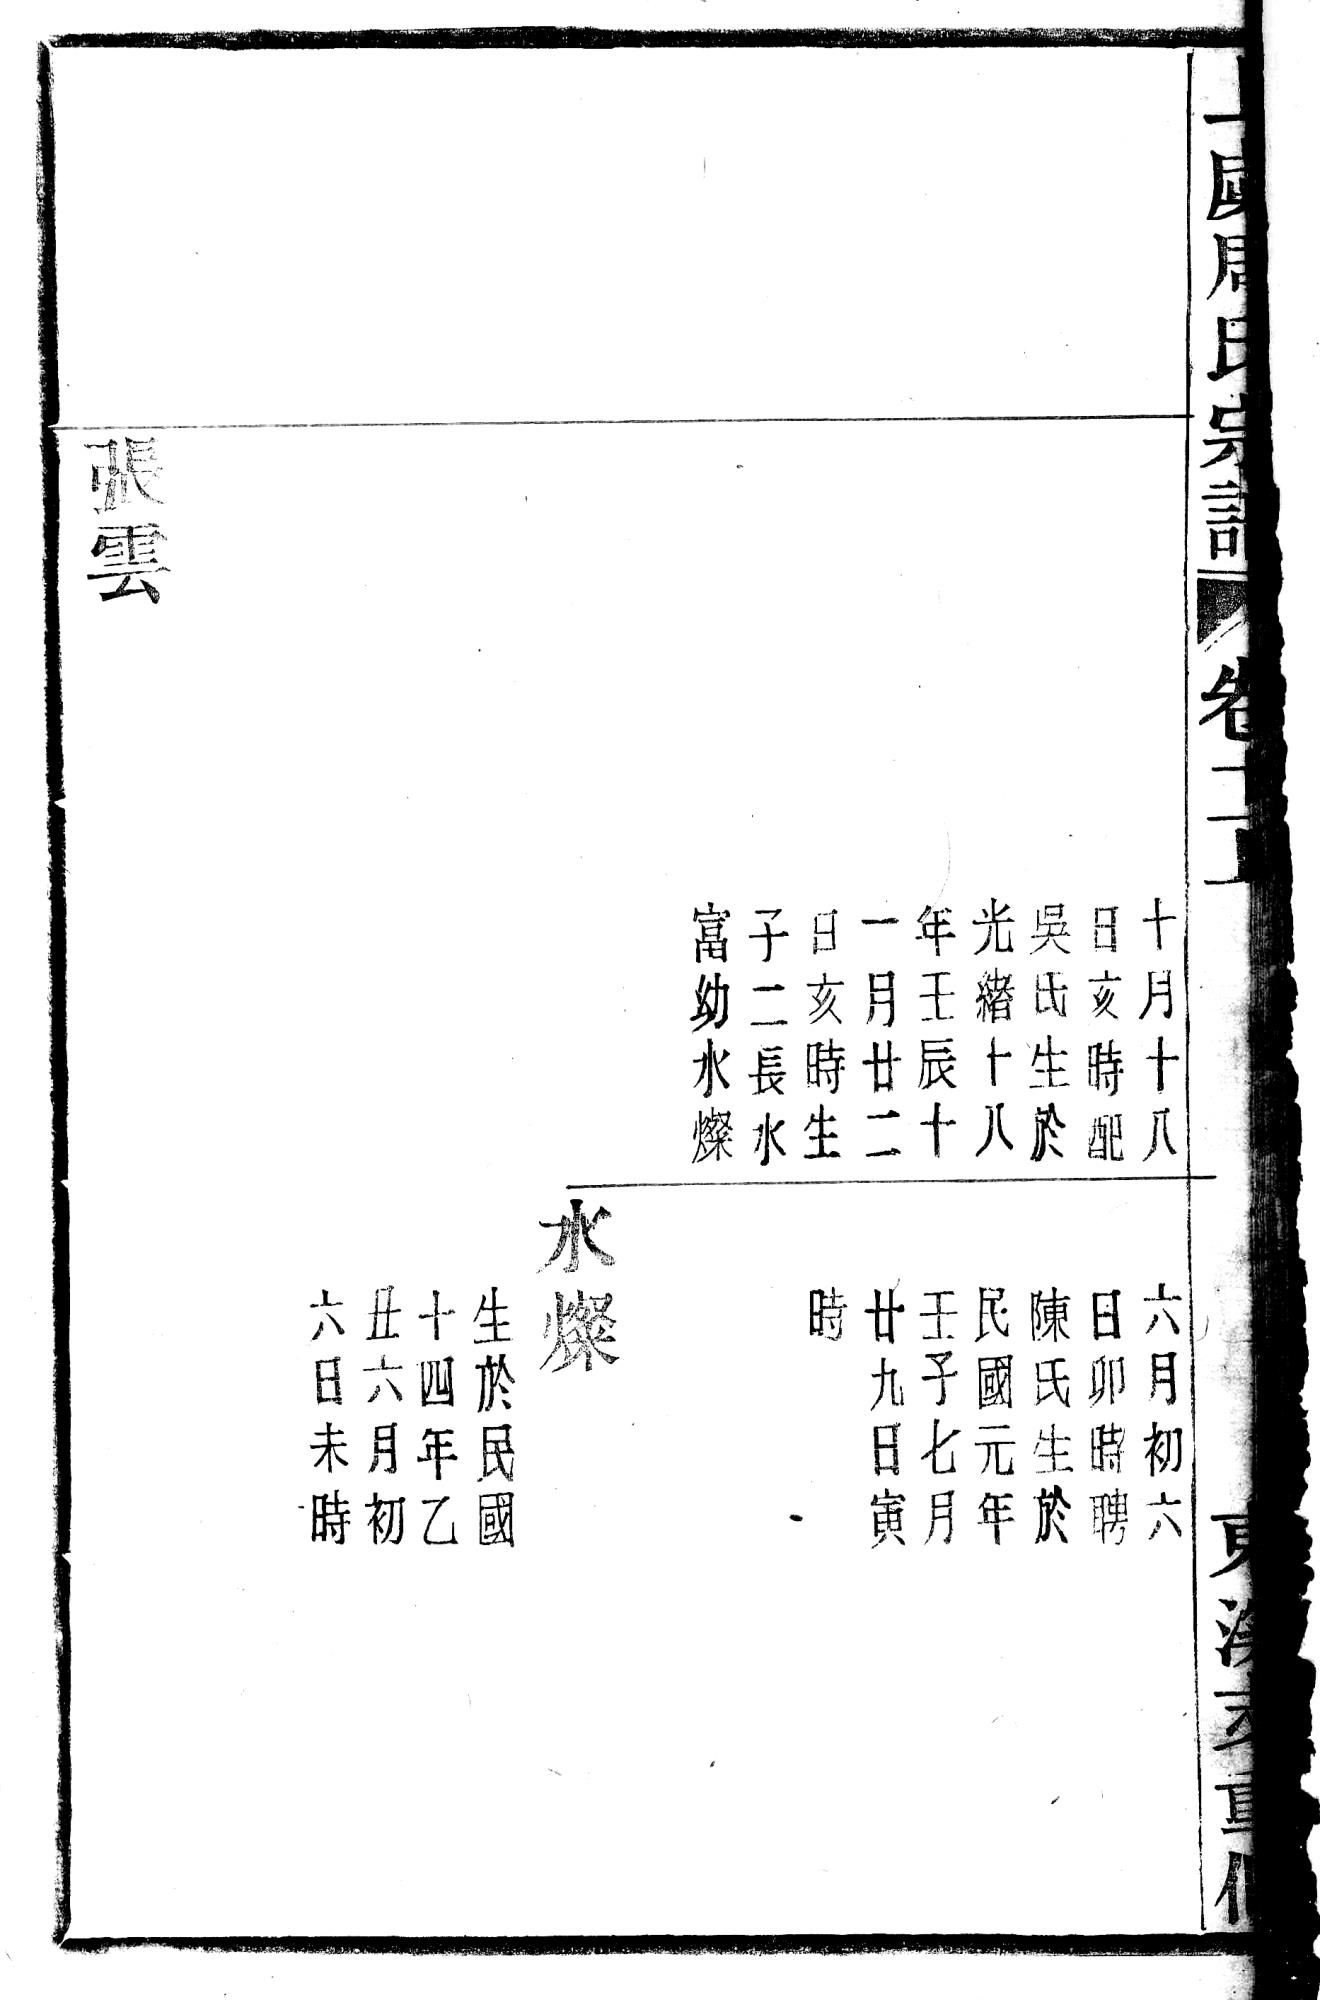 上虞周氏宗譜
卷十五
十月十八
日亥時配
吳氏生於
光緒十八
年壬辰十
一月廿二
日亥時生
子二長水
富幼水燦
張雲
六月初六
日卯時聘
陳氏生於
民國元年
壬子七月
廿九日寅
時
水燦
生於民國
十四年乙
丑六月初
六日未時